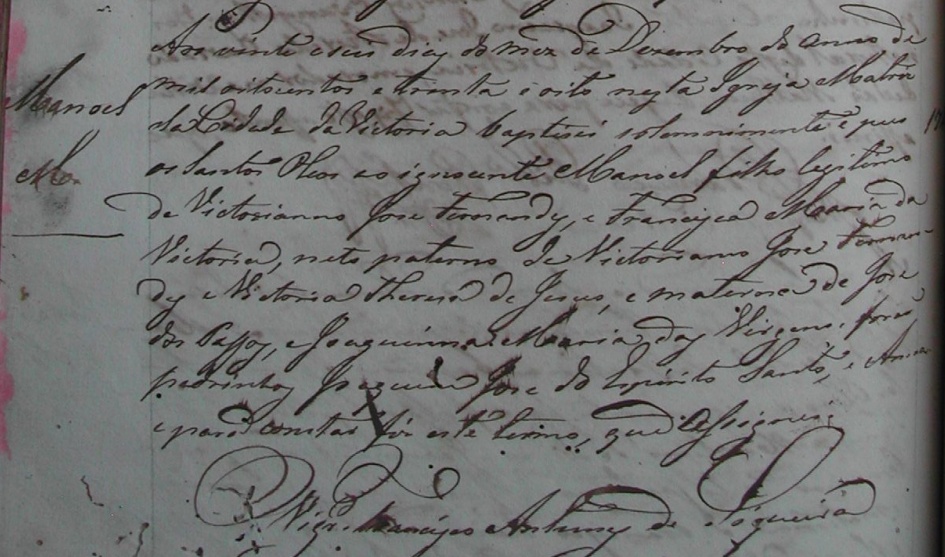 Aos vinte e seis dias do mez de Dezembro do anno de
Manoel
mil oitocentos e trinta e oito nesta Igreja Matriz
da Cidade da Victoria baptisei solemnimente e pus
os Santos Oleos ao ignocente Manoel filho legitimo
de Victorianno Jose Fernandes, e Francisca Maria da
Victoria, neto paterno de Victorianno Jose Fernan-
des e Victoria Theresa de Jesus, e materno de Jose
dos Passos, e Joaquinna Maria das Virgens. forão
padrinhos Jose do Espirito Santo, e Anna
e para constar fiz este termo, que assignei
Vigr.o Francisco Antunes de Siqueira